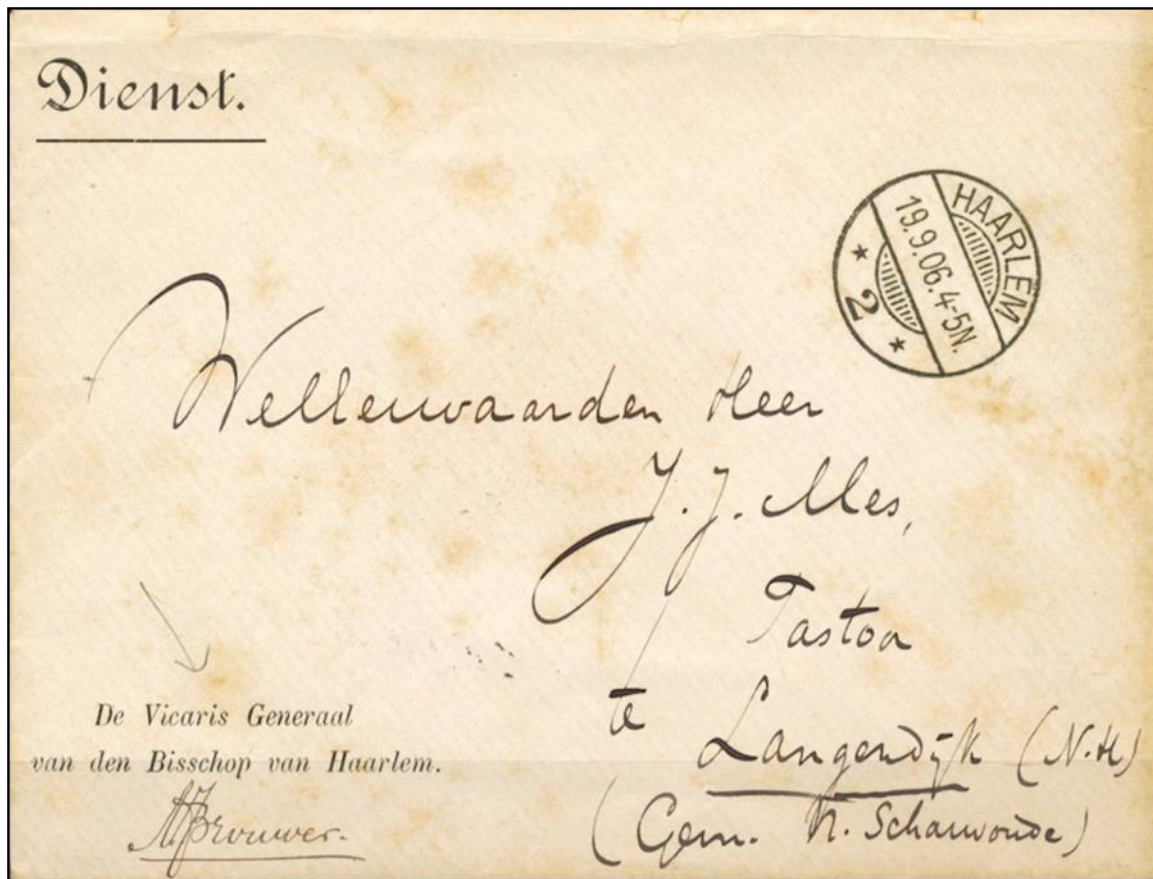 Dienst.
HAARLEM
19.9.06.4-5N.
* 2 *
Wellerwaarden Heer
J. J. Mes,
Pastoor
te Langendijk (N.H)
(Gem. N. Scharwoude)
De Vicaris Generaal
van den Bisschop van Haarlem.
Brouwer.